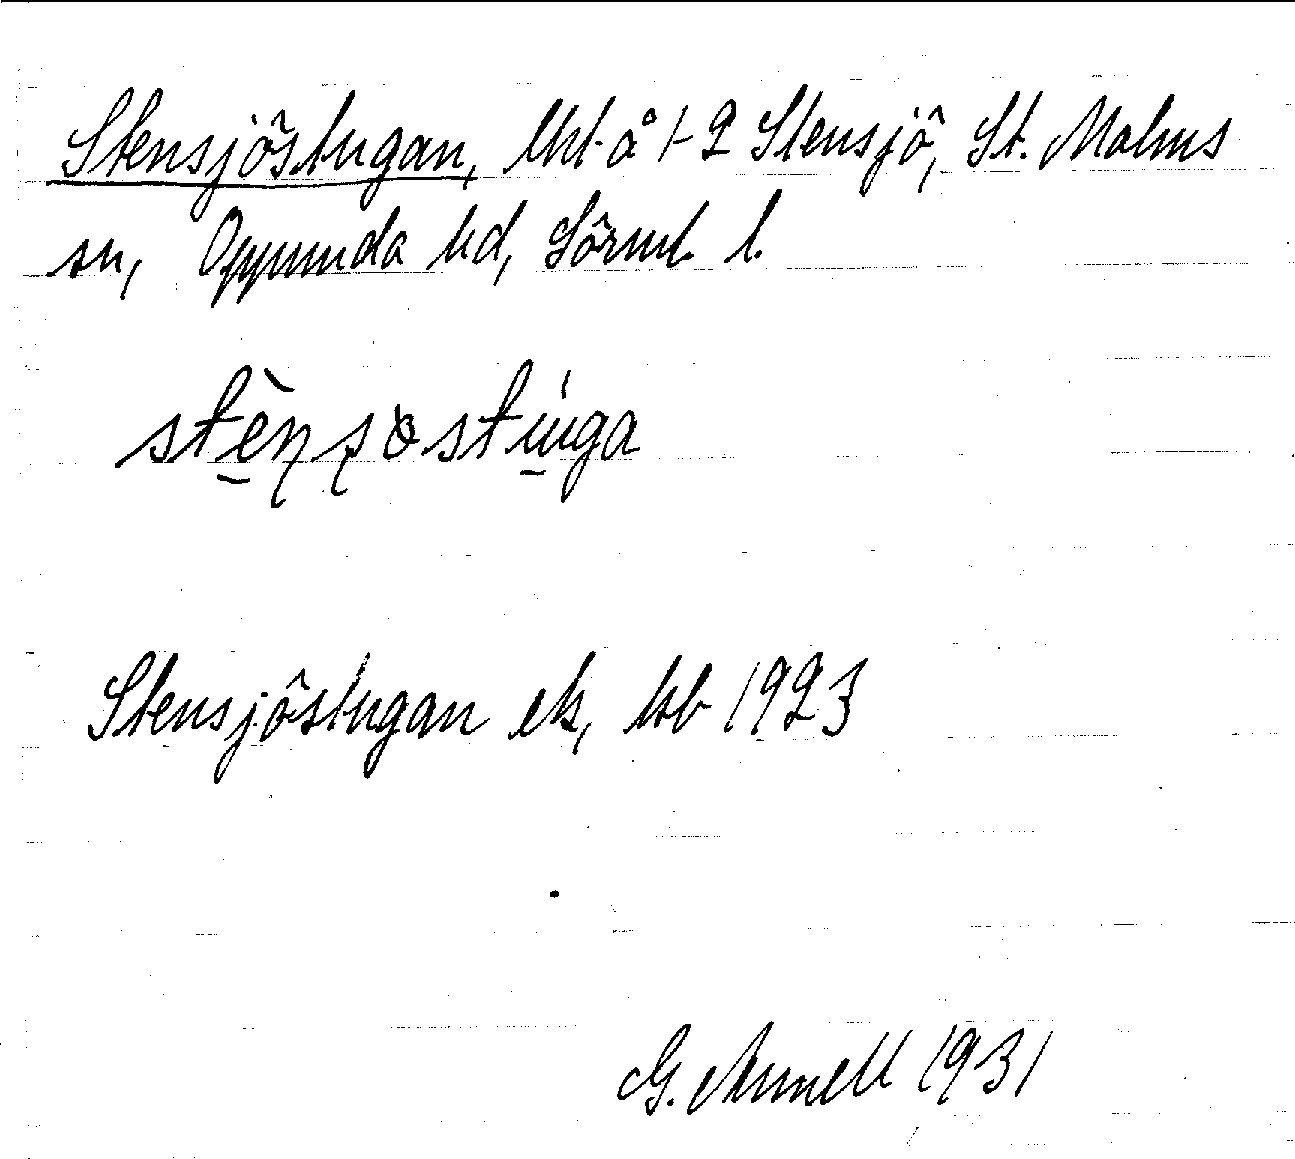 Stensjöstugan, lht å 1-2 Stensjö, St. Malms
sn, Oppunda hd, Sörml. l.
Stensjöstugan ek, kb 1923
G. Annell 1931